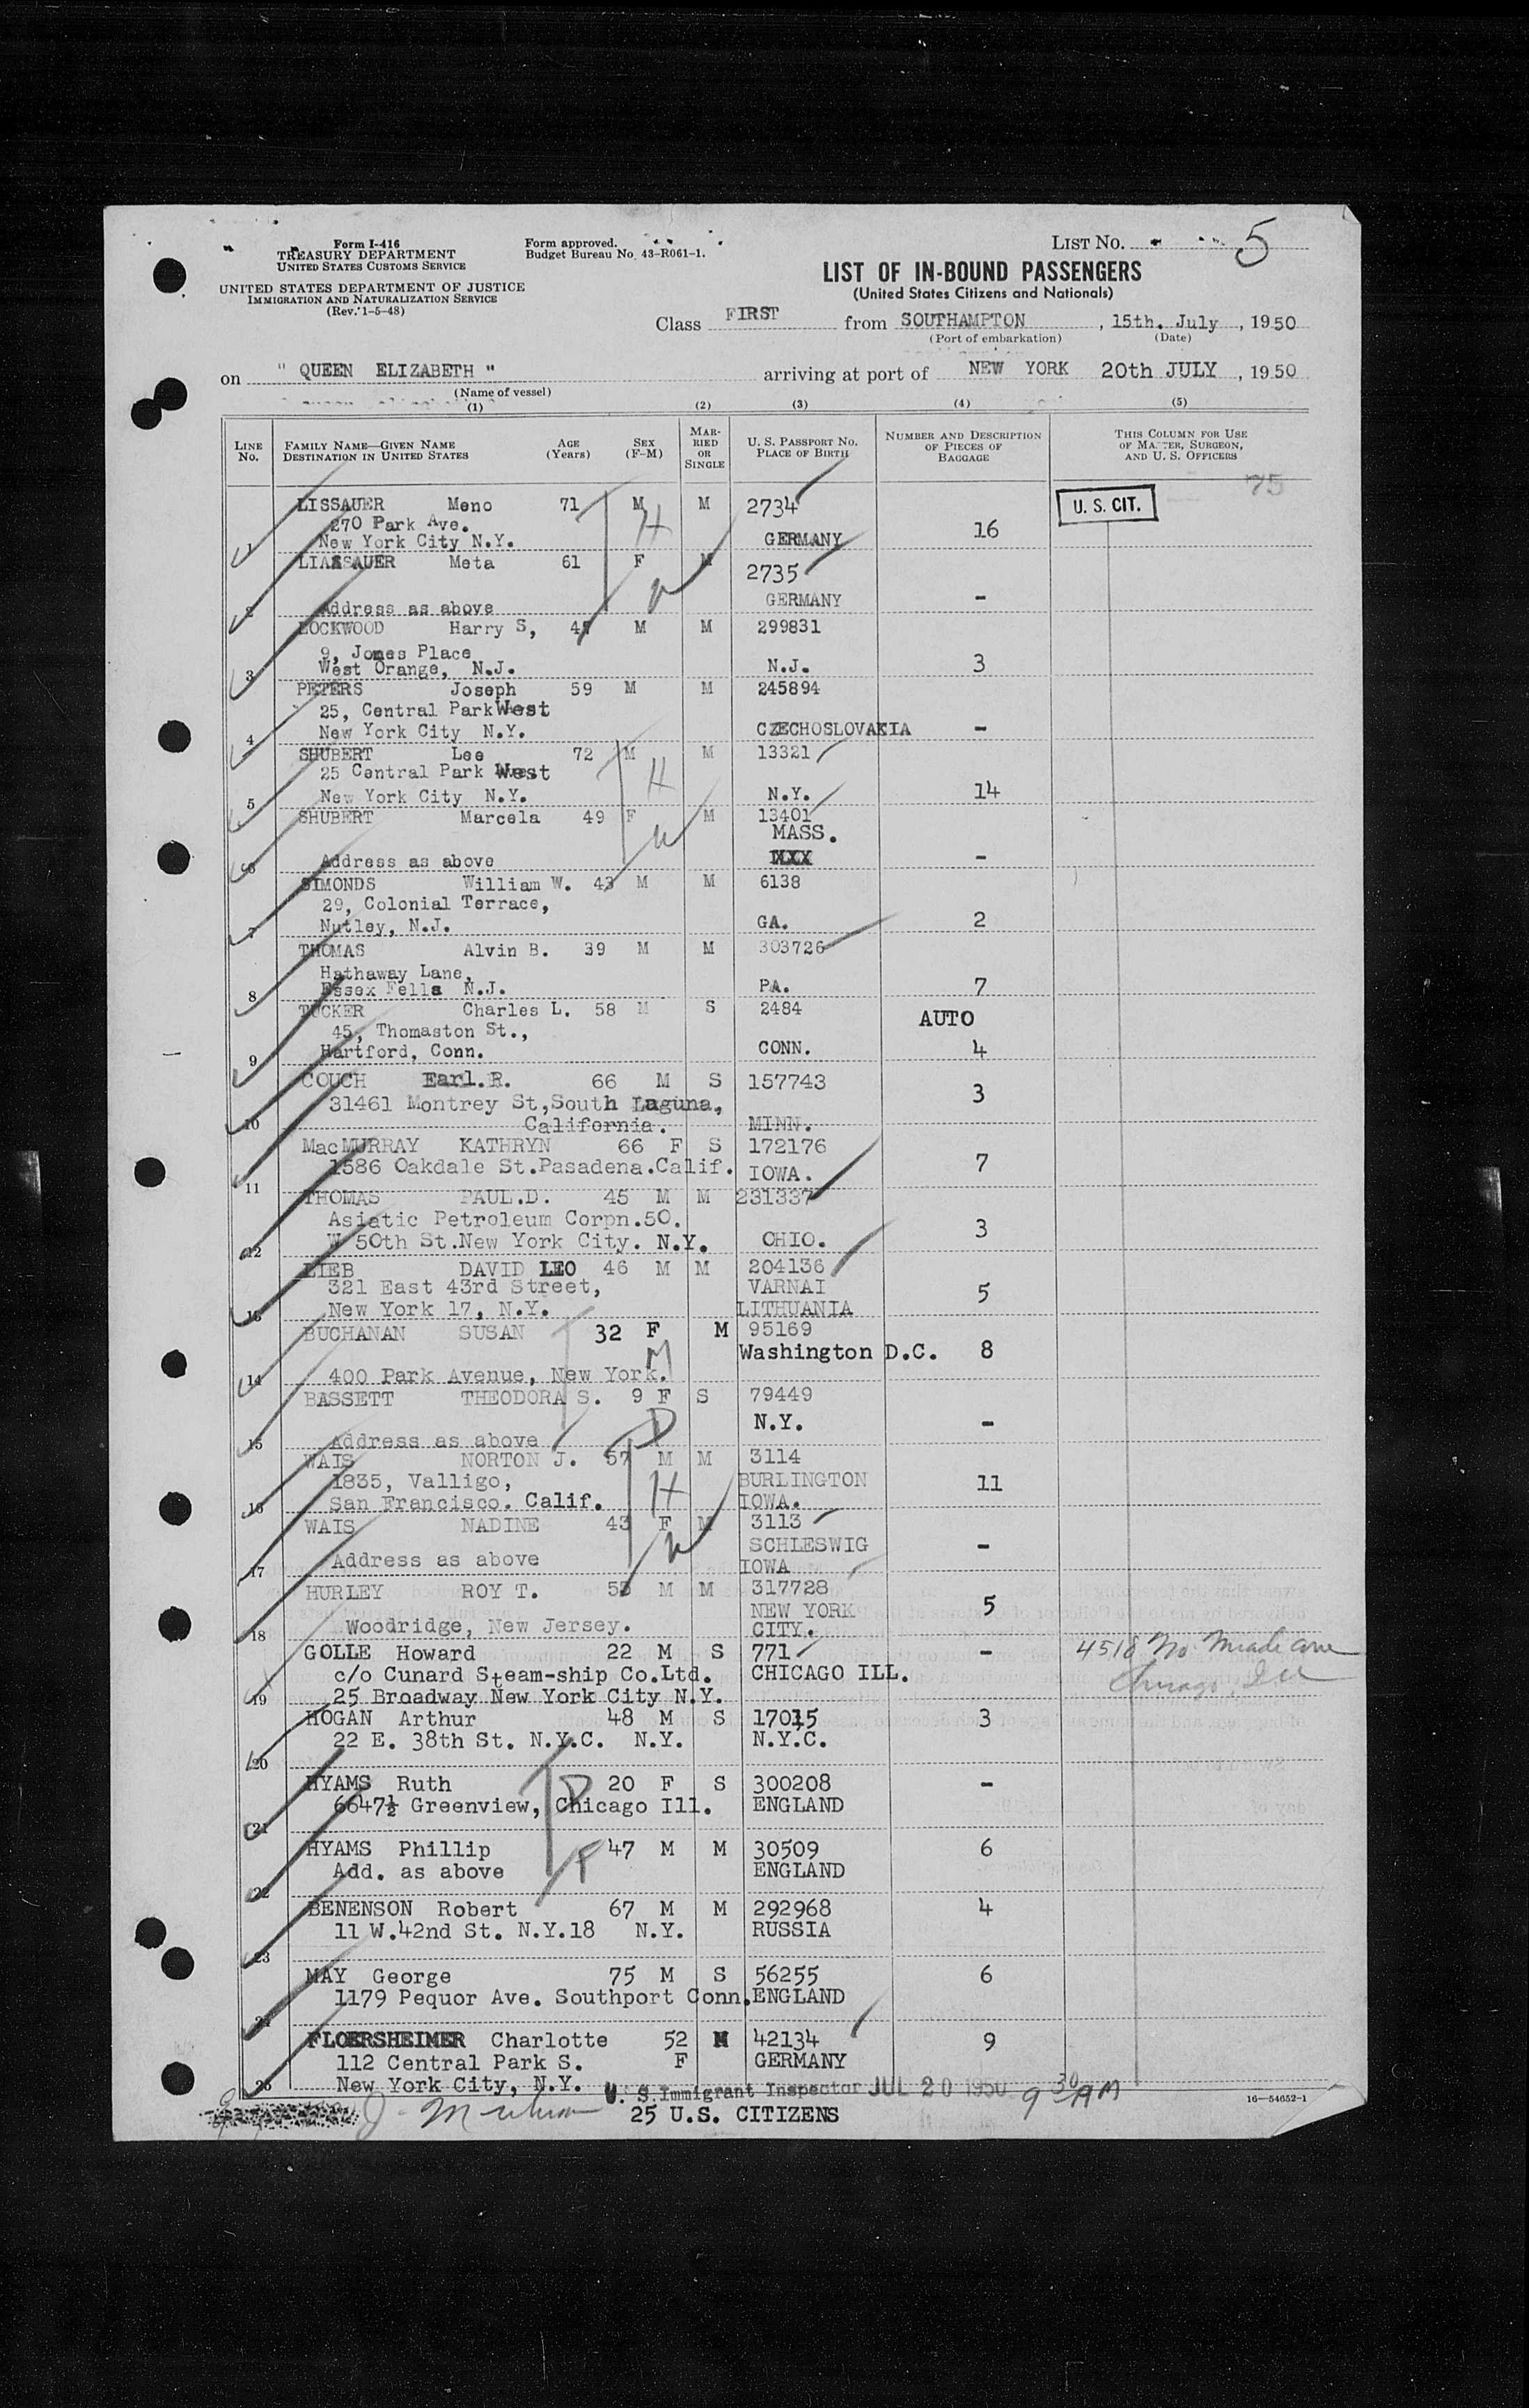 Form I-416
TREASURY DEPARTMENT
UNITED STATES CUSTOMS SERVICE
UNITED STATES DEPARTMENT OF JUSTICE
IMMIGRATION AND NATURALIZATION SERVICE
(Rev. 1-5-48)
Form approved.
Budget Bureau No. 43-R061-1.
LIST NO. 5
LIST OF IN-BOUND PASSENGERS
(United States Citizens and Nationals)
Class FIRST from SOUTHAMPTON, 15th. July, 1950
(Port of embarkation) (Date)
on " QUEEN ELIZABETH " arriving at port of NEW YORK 20th JULY, 1950
(Name of vessel)
(1) (2) (3) (4) (5)
LINE NO. FAMILY NAME—GIVEN NAME DESTINATION IN UNITED STATES AGE (Years) SEX (F-M) MARRIED OR SINGLE U. S. PASSPORT NO. PLACE OF BIRTH NUMBER AND DESCRIPTION OF PIECES OF BAGGAGE THIS COLUMN FOR USE OF MASTER, SURGEON, AND U. S. OFFICERS
75
LISSAUER Meno 71 M M 2734 U. S. CIT.
270 Park Ave. H
1 New York City N.Y. GERMANY 16
LISSAUER Meta 61 F M 2735
W
2 Address as above GERMANY -
LOCKWOOD Harry S, 47 M M 299831
9, Jones Place
3 West Orange, N.J. N.J. 3
PETERS Joseph 59 M M 245894
25, Central Park West
4 New York City N.Y. CZECHOSLOVAKIA -
SHUBERT Lee 72 M M 13321
25 Central Park West H
5 New York City N.Y. N.Y. 14
SHUBERT Marcela 49 F M 13401
W MASS.
6 Address as above -
SIMONDS William W. 43 M M 6138
29, Colonial Terrace,
7 Nutley, N.J. GA. 2
THOMAS Alvin B. 39 M M 303726
Hathaway Lane,
8 Essex Fells N.J. PA. 7
TUCKER Charles L. 58 M S 2484 AUTO
45, Thomaston St.,
9 Hartford, Conn. CONN. 4
COUCH Earl.R. 66 M S 157743 3
31461 Montrey St,South Laguna,
10 California. MINN.
MacMURRAY KATHRYN 66 F S 172176 7
1586 Oakdale St.Pasadena.Calif. IOWA.
11
THOMAS PAUL.D. 45 M M 231337
Asiatic Petroleum Corpn.50. 3
12 W 50th St.New York City. N.Y. OHIO.
LIEB DAVID LEO 46 M M 204136
321 East 43rd Street, VARNAI 5
13 New York 17, N.Y. LITHUANIA
BUCHANAN SUSAN 32 F M 95169
M Washington D.C. 8
14 400 Park Avenue, New York.
BASSETT THEODORA S. 9 F S 79449
D N.Y. -
15 Address as above
WAIS NORTON J. 57 M M 3114
1835, Valligo, H BURLINGTON 11
16 San Francisco. Calif. IOWA.
WAIS NADINE 43 F M 3113
W SCHLESWIG -
17 Address as above IOWA
HURLEY ROY T. 53 M M 317728
NEW YORK 5
18 Woodridge, New Jersey. CITY.
GOLLE Howard 22 M S 771 - 4518 No.
c/o Cunard Steam-ship Co.Ltd. CHICAGO ILL. Chicago, Ill
19 25 Broadway New York City N.Y.
HOGAN Arthur 48 M S 17015 3
22 E. 38th St. N.Y.C. N.Y. N.Y.C.
20
HYAMS Ruth 20 F S 300208 -
6647½ Greenview, Chicago Ill. ENGLAND
21 D
HYAMS Phillip 47 M M 30509 6
Add. as above F ENGLAND
22
BENENSON Robert 67 M M 292968 4
11 W.42nd St. N.Y.18 N.Y. RUSSIA
23
MAY George 75 M S 56255 6
1179 Pequor Ave. Southport Conn. ENGLAND
24
FLOERSHEIMER Charlotte 52 M 42134 9
112 Central Park S. F GERMANY
25 New York City, N.Y.
U. S. Immigrant Inspector JUL 20 1950 9 30 AM
25 U.S. CITIZENS
16—54652-1